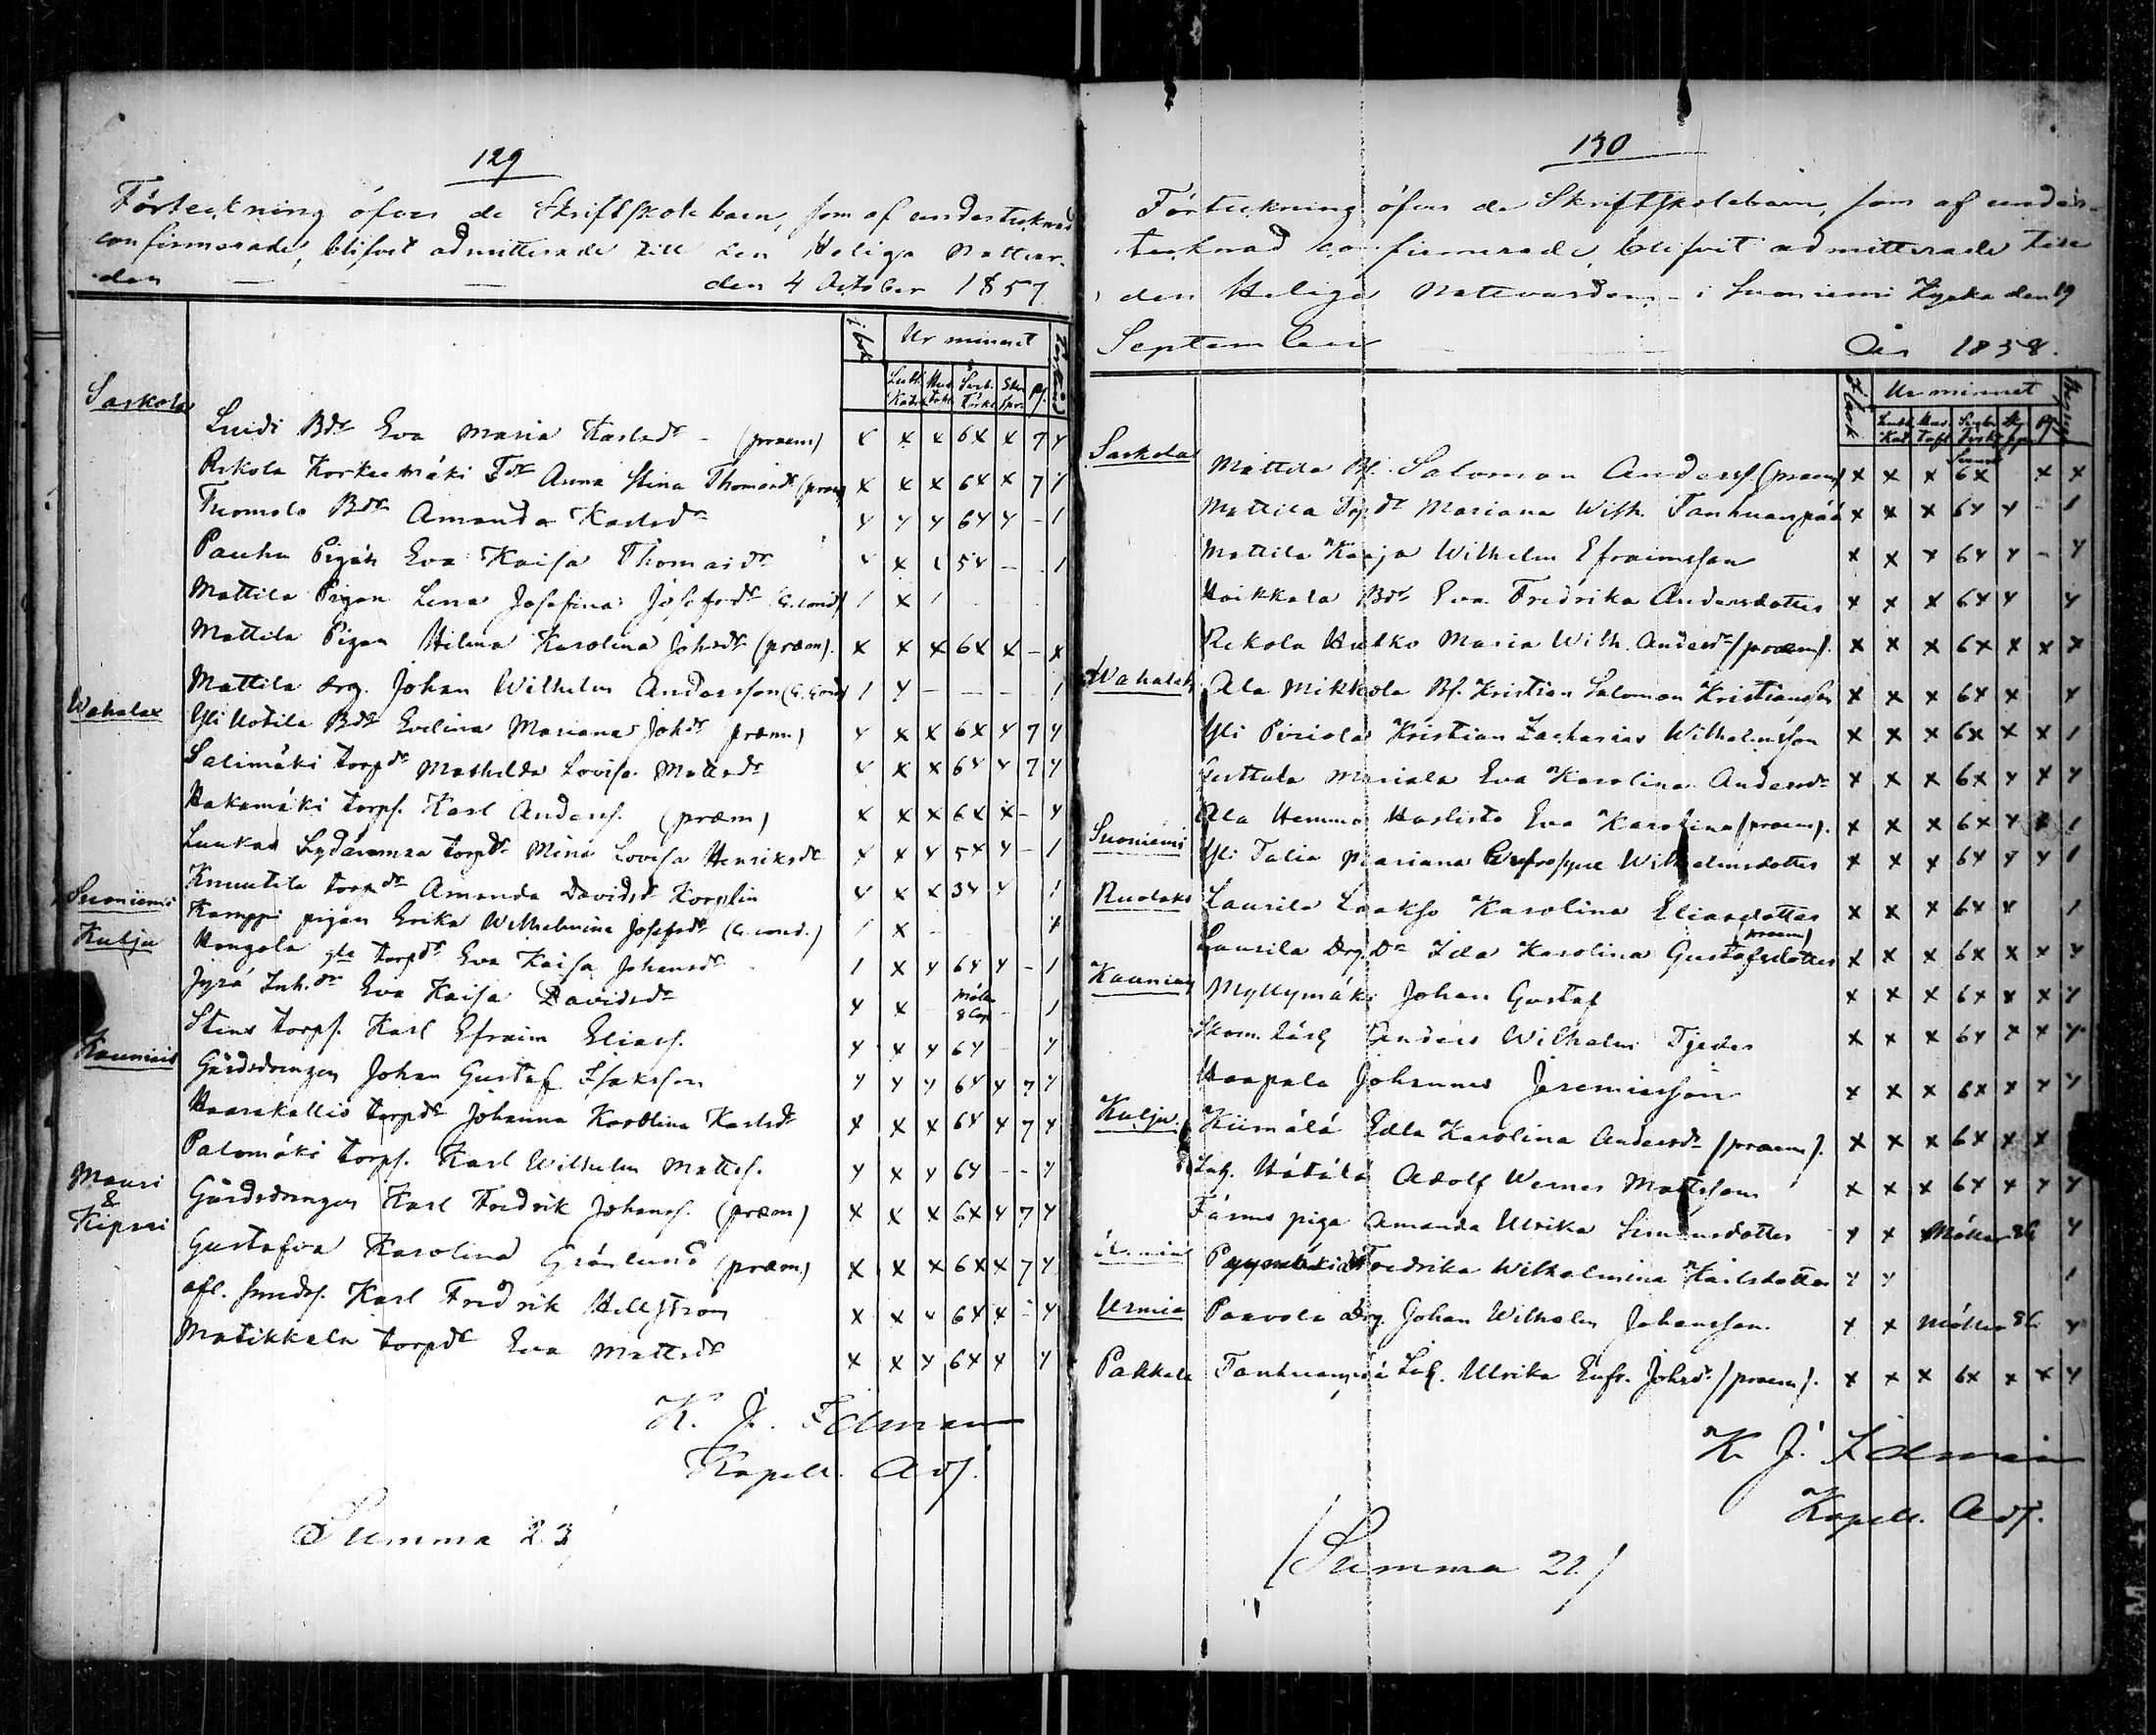 129
Förteckning öfver de Skriftskolebarn, som af undertecknad
confirmerade, blifvit admitterade till den Heliga Nattvar-
den — — — den 4 October 1857
i bok Ur minnet
Luth. Katek Hus tafl. Svb. förkl. Skr. spr. ps.
Saskola
Luidi Bdr Eva Maria Karlsdr - (præm) x x x 6x x 7 x
Rekola Korkeemäki Tdr Anna Stina Thomasdr (præm) x x x 6x x 7 x
Tuomola Bdr Amanda Karlsdr x x x 6x x - 1
Pauhu Pigan Eva Kaisa Thomasdr x x 1 5x - 1
Mattila Pigan Lena Josefina Josefsdr (C. cond) 1 x 1
Mattila Pigan Hilma Karolina Johsdr (præm). x x x 6x x - x
Mattila drg. Johan Wilhelm Andersson (C. Cond) 1 x - - - - 1
Wahalax Yli Uotila Bdr Evelina Mariana Johdr præm) x x x 6x x 7 x
Salimäki torpdr Mathilda Lovisa Mattsdr x x x 6x x 7 x
Hakamäki torps. Karl Anderss. (præm) x x x 6x x - x
Laukas torpdr Mina Lovisa Henriksdr x x x 5x x - 1
Suoniemi Knuutila torpdr Amanda Davidsdr Korplin x x x 3x x 1
Kulju Kamppi pigan Erika Wilhelmina Josefsdr (C. cond.) 1 x - x
Hongola gla torpdr Eva Kaisa Johansdr 1 x x 6x x - 1
Jyrä Inh. dr Eva Kaisa Davidsdr x x Möller 8 Cap - 1
Stens torps. Karl Efraim Eliass. x x x 6x x
Kauniais Gårdsdrengen Johan Gustaf Isaksson x x x 6x x 7 x
Haarakallio torpdr Johanna Karolina Karlsdr x x x 6x x 7 x
Palomäki torps. Karl Wilhelm Mattss. x x x 6x - - x
Mauri & Kipari Gårdsdrengen Karl Fredrik Johanss. (præm) x x x 6x x 7 x
Gustafva Karolina Grönlund (præm) x x x 6x x 7 x
afl. smeds. Karl Fredrik Hellström x x x 6x x - x
Matikkala torpdr Eva Mattsdr x x x 6x x x
K. J. Idman
Kapell. Adj.
Summa 23
130
Förteckning öfver de Skriftskolebarn, som af under-
tecknad confirmerade, blifvit admitterade till
den Heliga Nattvarden - i Suoniemi Kyrka den 19
September — — År 1858.
I bok Ur minnet
Luth. Kat. Hus Tafl Svb. Förk. Sk. sp. ps.
Saskola Mattila Bs. Salomon Anderss. (præm) x x x 6x x x
Mattila Torpdr Mariana Wilh. Tanhuanpää x x x 6x x - 1
Mattila Karja Wilhelm Efraimsson x x x 6x x - x
Hoikkala Bdr Eva Fredrika Andersdotter x x x 6x x x
Rekola Hulko Maria Wilh. Andersdr (præm). x x x 6x x x x
Wahalax Ala Mikkola Bs. Kristian Salomon Kristiansson x x x 6x x x
Yli Piriola Kristian Zacharias Wilhelmsson x x x 6x x x 1
Mariala Eva Karolina Andersdr x x x 6x x x x
Ala Hemmo Haslisto Eva Karolina (præm). x x x 6x x x 1
Suoniemi Yli Talia Mariana Eufrosyne Wilhelmsdotter x x x 6x x x 1
Laurila Laakso Karolina Eliasdotter x x x 6x x 1
Laurila Drg. Dr Ida Karolina Gustafsdotter (præm) x x x 6x x x x
Kauniais Myllymäki Johan Gustaf x x x 6x x x x
Skom. lärl. Anders Wilhelm Tjeder x x x 6x x x x
Haapala Johannes Jeremiasson x x x 6x x x x
Kulju Kiimälä Edla Karolina Andersdr (præm). x x x 6x x x
Inh. Hätälä Adolf Werner Mattsson x x x 6x x x x
Färms piga Amanda Ulrika Simonsdotter x x Möller 8 C x
Fredrika Wilhelmina Karlsdotter x x 1
Urmia Paavola Drg. Johan Wilhelm Johansson. x x Möller 8 C x
Pakkala Tanhuanpää Inh. Ulrika Eufr. Johsdr (præm). x x x 6x x x x
K. J. Idman
Kapell. Adj.
(Summa 21)